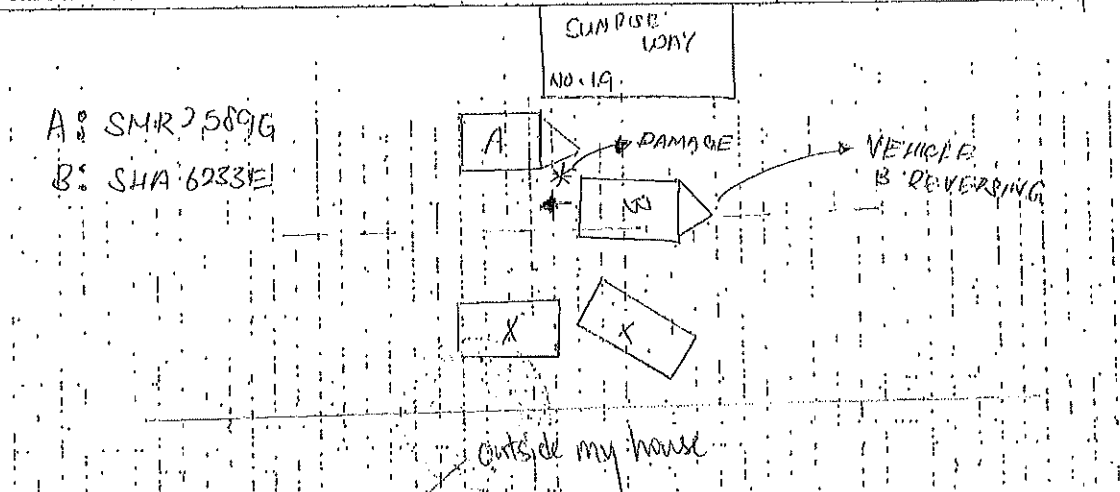 SUNRISE
WAY
NO. 19.
A: SMR2589G
B: SHA6233E
A
DAMAGE
VEHICLE
B REVERSING
B
X
X
outside my house